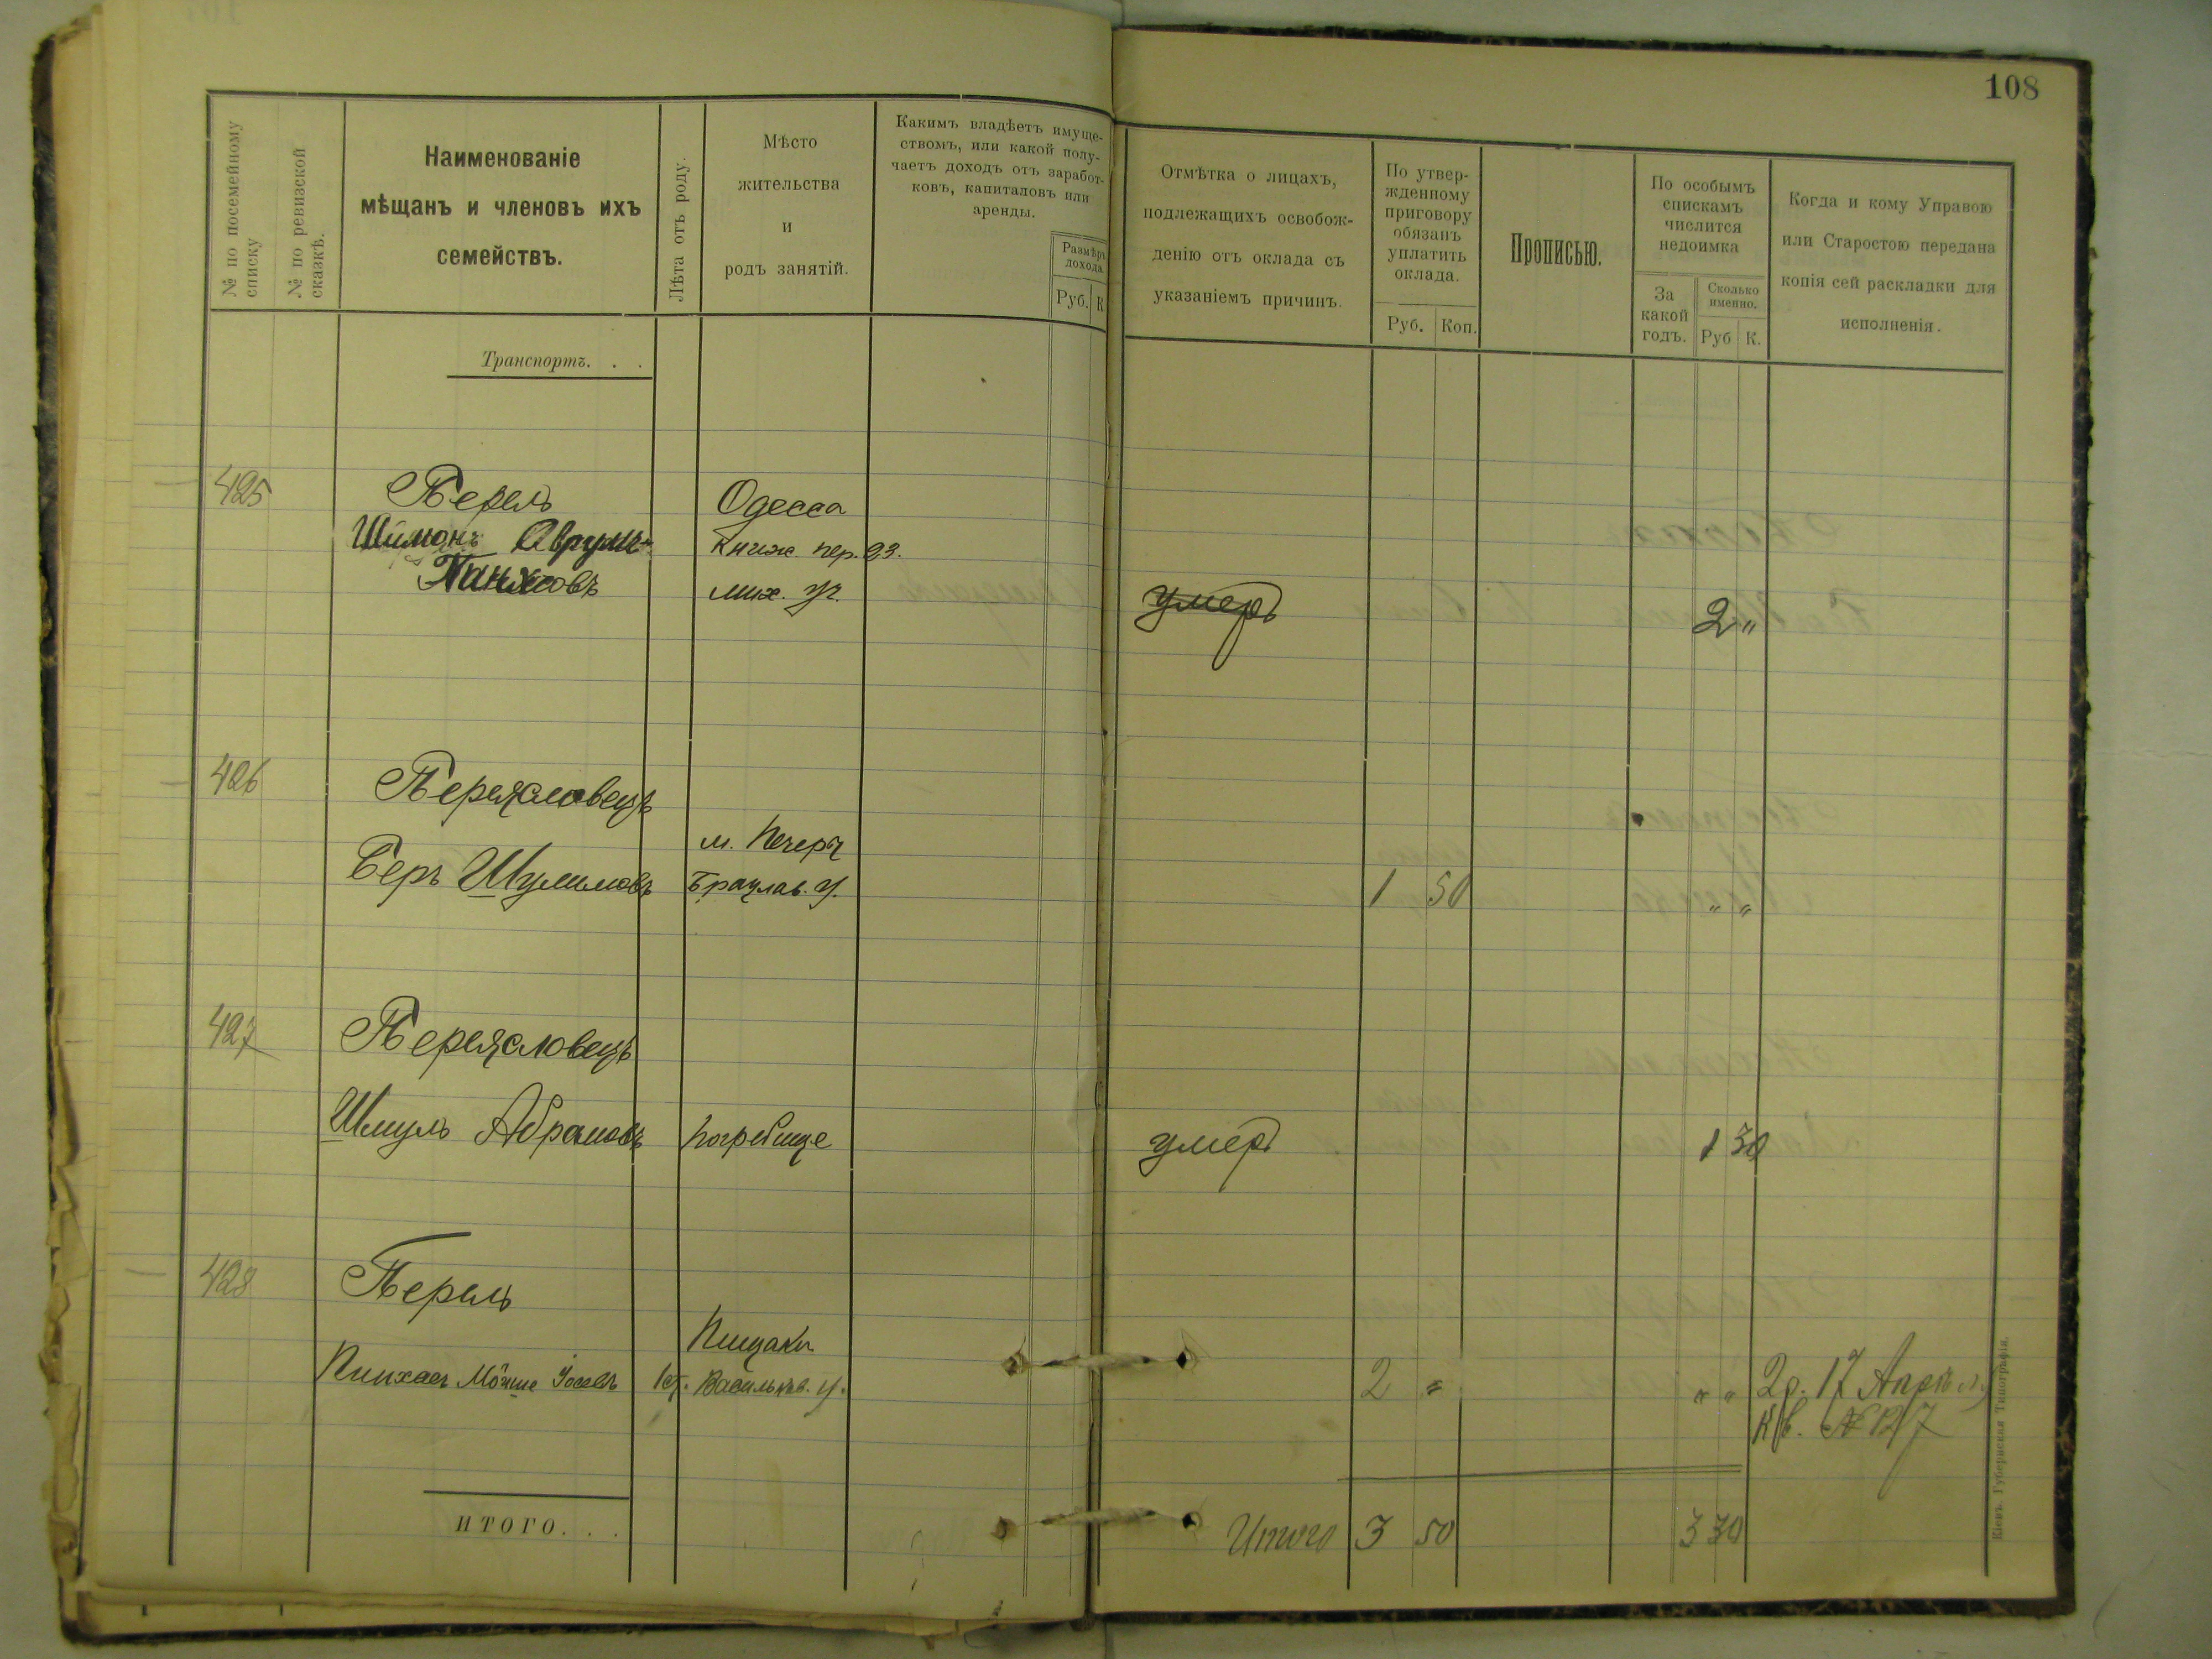 108
№ по посемейному списку
№ по ревизской сказкѣ.
Наименованіе
мѣщанъ и членовъ ихъ
семействъ.
Лѣта отъ роду.
Мѣсто
жительства
и
родъ занятій.
Какимъ владѣетъ имуще-
ствомъ, или какой полу-
чаетъ доходъ отъ заработ-
ковъ, капиталовъ или
аренды.
Размѣръ
дохода.
Руб. К
Отмѣтка о лицахъ,
подлежащихъ освобож-
денію отъ оклада съ
указаніемъ причинъ.
По утвер-
жденному
приговору
обязанъ
уплатить
оклада.
Руб. Коп.
Прописью.
По особымъ
спискамъ
числится
недоимка
За
какой
годъ.
Сколько
именно.
Руб К.
Когда и кому Управою
или Старостою передана
копія сей раскладки для
исполненія.
Транспортъ. . .
425 Перель Одесса
Шимонъ Аврумъ- Книж пер. 23.
мих. уч. умеръ 2 "
426 Переясловецъ
м. Печеры
Беръ Шулимовъ Брацлав. у. 1 50 " "
427 Переясловецъ
Шмуль Абрамовъ Погребище умеръ 1 30
428 Перель
Пинхасъ Мойше Іосевъ Васильков. у. 2 " " " 2 р. 17 Апрѣля
Кв. № 127
ИТОГО. . .
Итого 3 50 3 30
Кіевъ. Губернская Типографія.